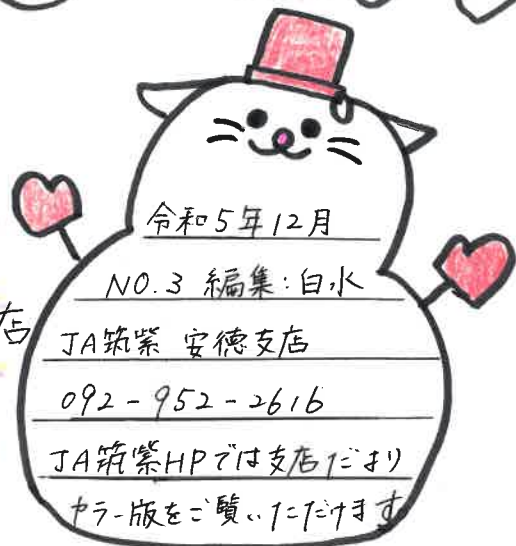 令和5年12月
NO.3 編集:白水
店
JA筑紫 安徳支店
092-952-2616
JA筑紫HPでは支店だより
カラー版をご覧いただけます